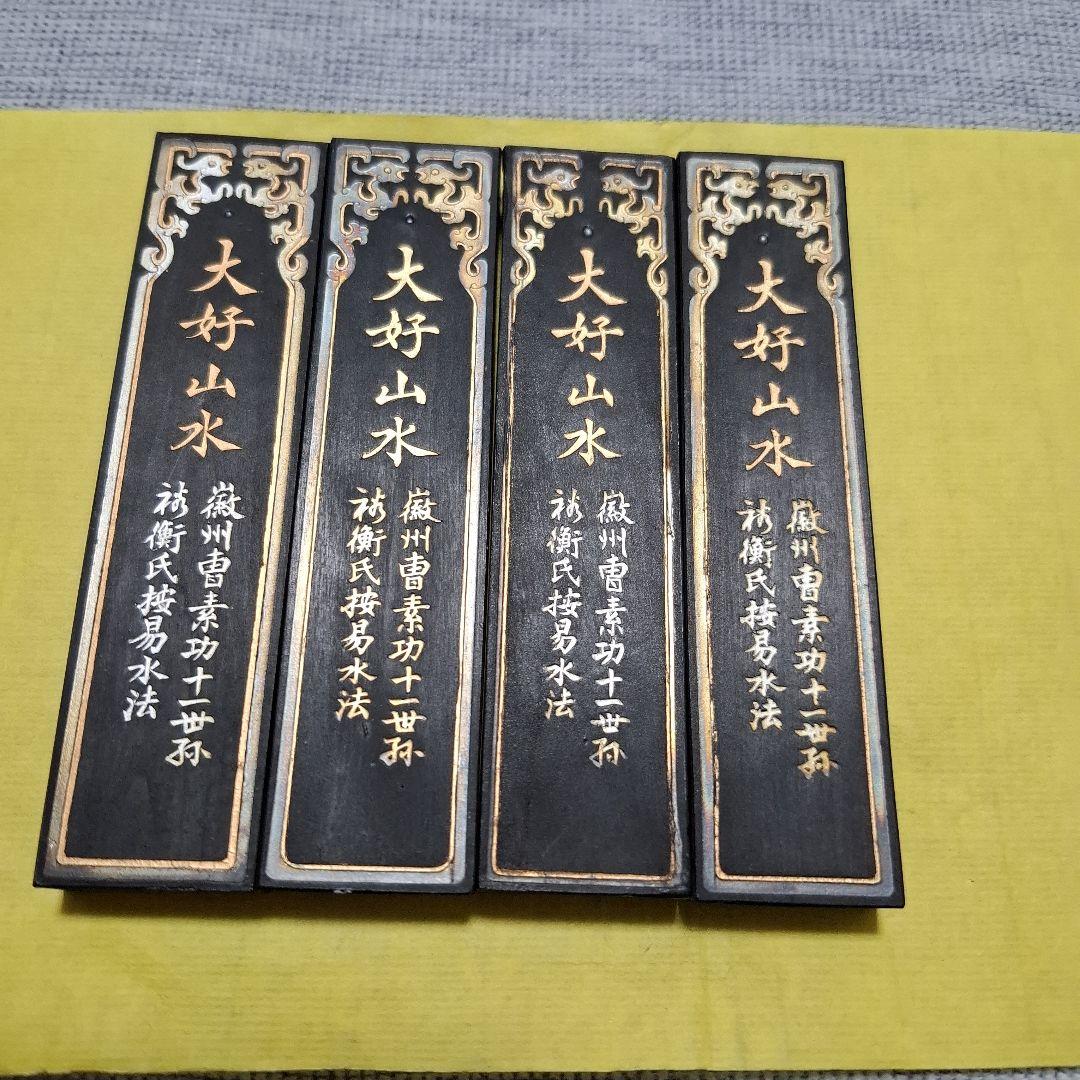 大好山水
徽州曹素功十一世孙
裕衡氏按易水法
大好山水
徽州曹素功十一世孙
裕衡氏按易水法
大好山水
徽州曹素功十一世孙
裕衡氏按易水法
大好山水
徽州曹素功十一世孙
裕衡氏按易水法